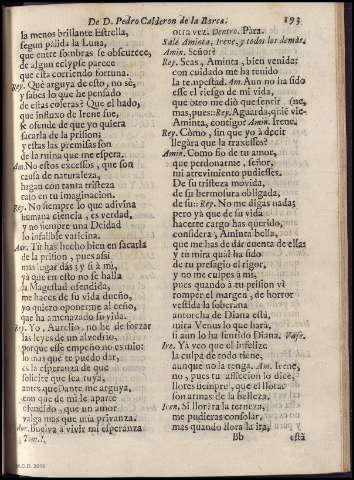 De D. Pedro Calderon de la Barca. 193
la menos brillante Estrella,
segun palida la Luna,
que entre sombras se obscurece,
de algun eclypse parece
que está corriendo fortuna.
Rey. Què arguya de esto, no sè,
y sabes lo que he pensado
de estas coleras? Que el hado,
que influxo de Irene fue,
se ofende de que yo quiera
sacarla de la prision;
y estas las premissas son
de la ruina que me espera.
Am. No estos excessos, que son
causa de naturaleza,
hagan con tanta tristeza
caso en tu imaginacion.
Rey. No siempre lo que adivina
humana ciencia, es verdad,
y no siempre una Deidad
lo infalible vaticina.
Aur. Tu has hecho bien en sacarla
de la prision, pues assi
mas lugar dàs y si à mi,
ya que en esto no se halla
la Magestad ofendida,
me haces de su vida dueño,
yo quiero oponerme al ceño,
que ha amenazado su vida.
Rey. Yo, Aurelio, no he de forzar
las leyes de un alvedrio,
porque esse empeño no es mio:
lo mas que te puedo dar,
es la esperanza de que
solicite que sea tuya,
antes que Dante me arguya,
con que de mi le aparte
ofendido, que un amor
valga mas que una privanza.
Aur. Buelva à vivir mi esperanza
Tom. I.
otra vez. Dentro. Pàra.
Sale Aminta, Irene, y todos los demàs.
Amin. Señor?
Rey. Seas, Amin, bien venida:
con cuidado me ha tenido
la tempestad. Am. No ha sido
esse el riesgo de mi vida,
que otro me diò que sentir (ne,
mas, pues: Rey. Aguarda, què vie-
Aminta, contigo? Amin. Irene.
Rey. Còmo, sin que yo à decir
llegàra que la traxesses?
Amin. Como fio de tu amor,
que perdonarme, señor,
mi atrevimiento pudiesses.
De su tristeza movida,
de su hermosura obligada,
de su: Rey. No me digas nada;
pero yà que de su vida
hacerte cargo has querido,
considera, Aminta bella,
que me has de dàr cuenta de ella:
y tu mira qual ha sido
de tu presagio el rigor,
y no me culpes à mi,
pues quando à tu prision vi
romper el margen, de horror
vestida la soberana
antorcha de Diana està,
mira Venus lo que harà,
si aun lo ha sentido Diana. Vase.
Ire. Yà veo que el infelize
la culpa de todo tiene,
aunque no la tenga. Am. Irene,
no, pues tu afliccion lo dice,
llores siempre, que el llorar
son armas de la belleza.
Iren. Si llorára la terneza,
me pudieras consolar,
mas quando llora la ira,
Bb està